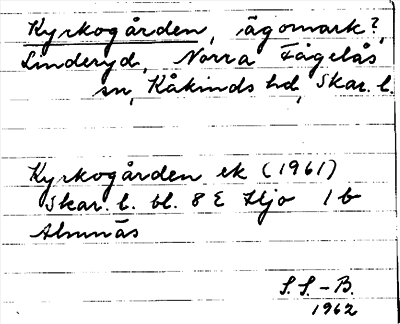 Kyrkogården, ägomark?,
Linderyd, Norra Fågelås
sn, Kåkinds hd, Skar. l.
Kyrkogården ek (1961)
Skar. l. bl. 8 E Hjo 1 b
Almnäs
S.S.-B.
1962